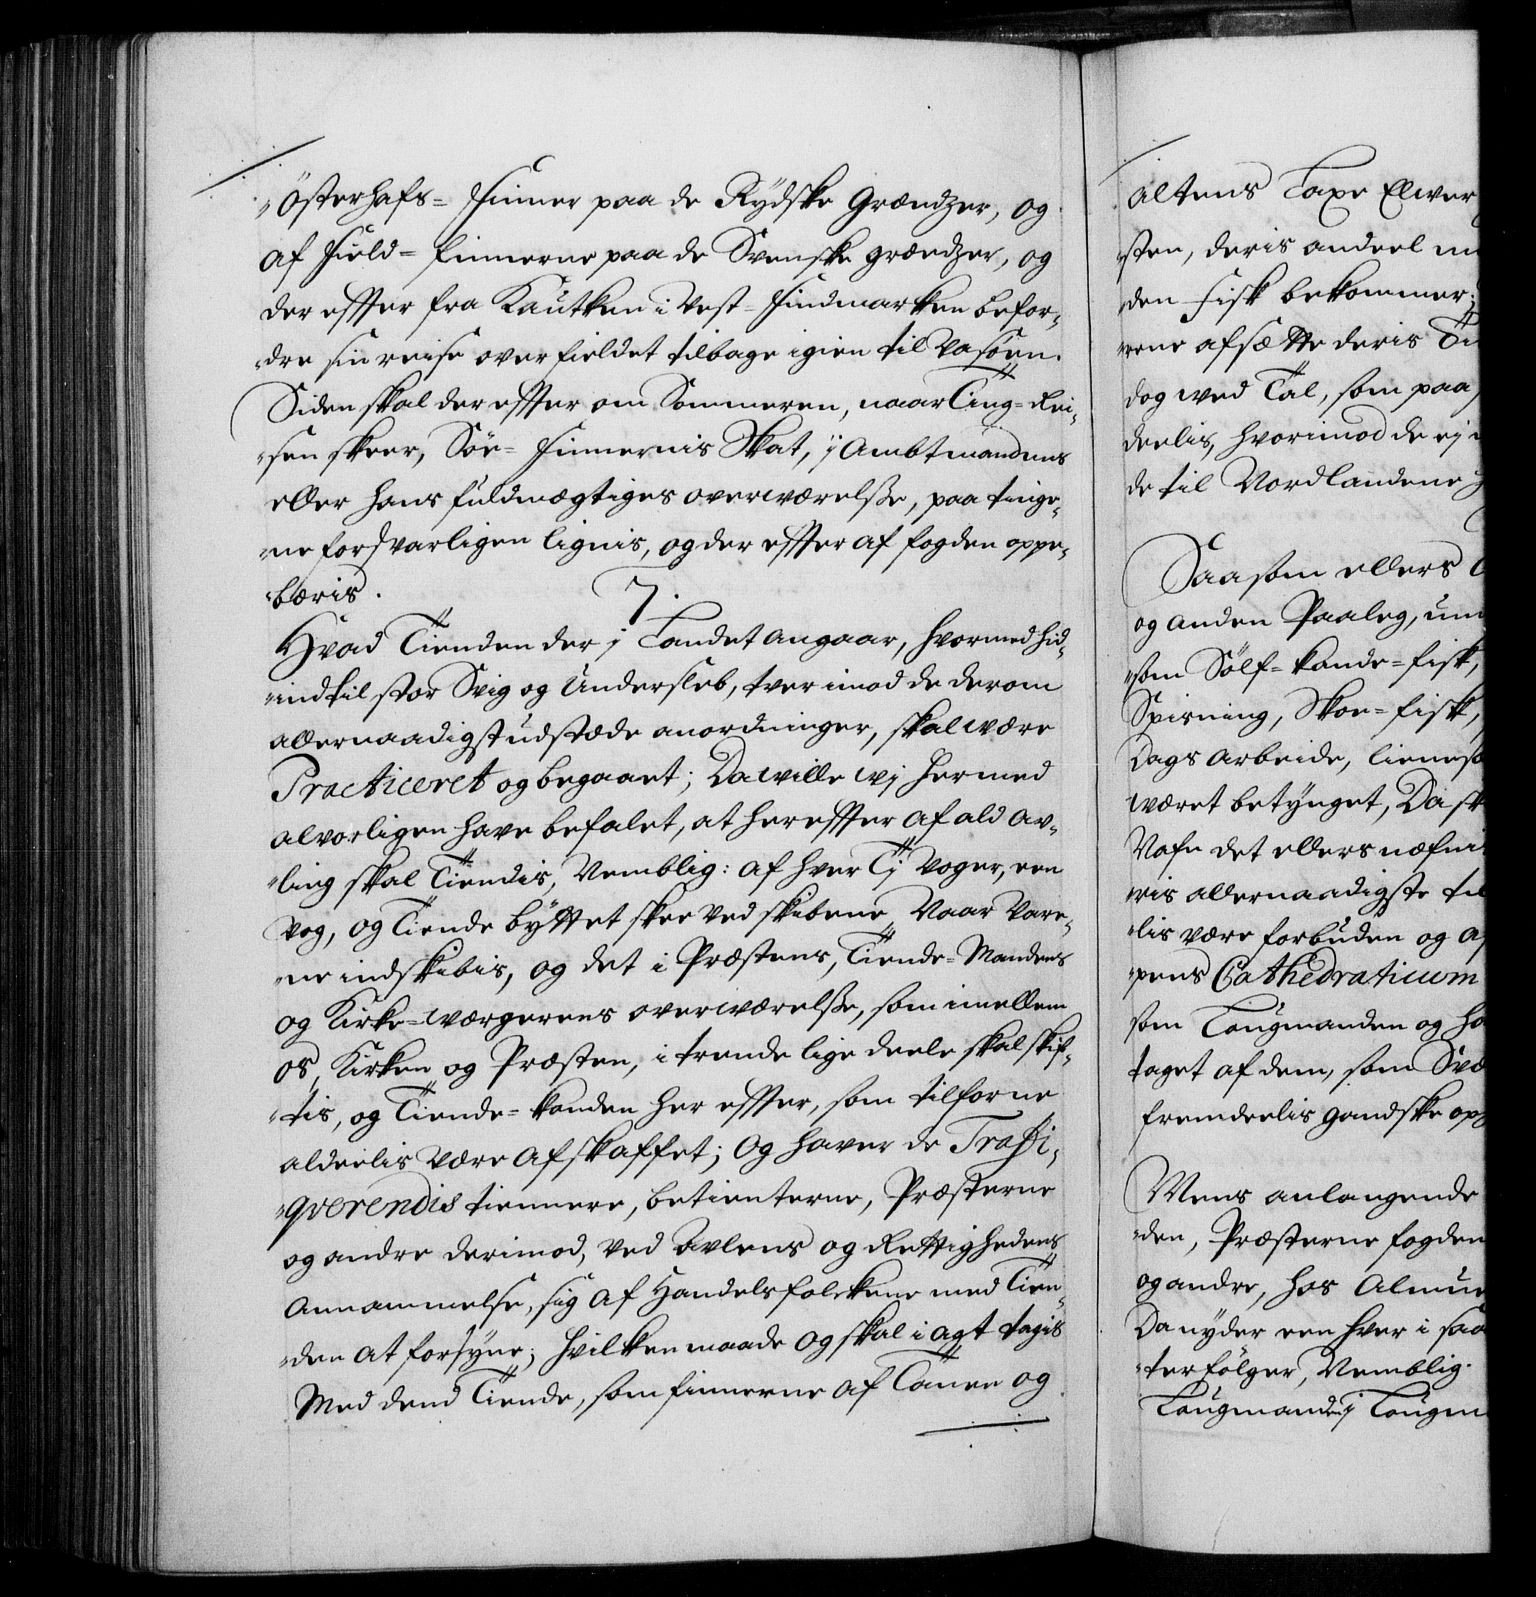 Østerhafs= Finner paa de Rydske Grændzer, og
af Field= finnerne paa de Svenske grændzer, og
der effter fra Kautken i Vest=Findmarken befor-
dre sin reise over fieldet tilbage igien til Vasøen.
Siden skal der effter om Sommeren, naar Ting=Rei-
sen skeer, Søe= finnernis Skat, j Ambtmandens
eller hans fuldmægtiges overwærelsse, paa tinge-
ne forsvarligen lignis, og der effter af fogden oppe-
bæris.
7.
Hvad Tienden der j Landet angaar, hvormed hid-
indtil stor Svig og Undersleb, tver imod de derom
allernaadigst udstæde anordninger, skal wære
Practiceret og begaaet; Da wille wj hermed
alvorligen have befalet, at her effter af ald av-
ling skal Tiendis, Nemblig: af hver Tj Voger, een
Vog, og Tiende byttet skee ved skibene, Naar Vare-
ne indskibis, og det i Præstens, Tiende=Mandens
og Kirke=wærgerens overwærelsse, som imellem
os, Kirken og Præsten, i trende lige deele skal skif-
tis, og Tiende=kanden her effter, som tilforne
aldeelis være afskaffet; Og haver de Traffi-
qverendis tiennere, betienterne, Præsterne
og andre derimod, ved avlens og Rettighedens
Annammelse, sig af Handelsfolckene med Tien-
den at forsyne; hvilken maade og skal i agt tagis
Med dend Tiende, som finnerne af Tanen og
Altens Taxe Elwer
sten, deris andeel
den fisk bekommer;
rene afsætte deris
dog wed Tal, som paa
deelis, hvorimod de ej
de til Nordlandene
Saasom ellers
og anden Paaleg,
som Sølf=kande=fisk,
Spisning, Skoe=fisk,
Dags arbeide,
wæret betynget, Da
Nafn det ellers
ris allernaadigste
lis være forbuden og
pens Cathedraticum
som Laugmanden og
taget af dem, som
fremdeelis gandske
Mens anlangende
den, Præsterne fogden
og andre, hos
Da nyder een hver i
ter følger, Nemblig.
Laugmanden j